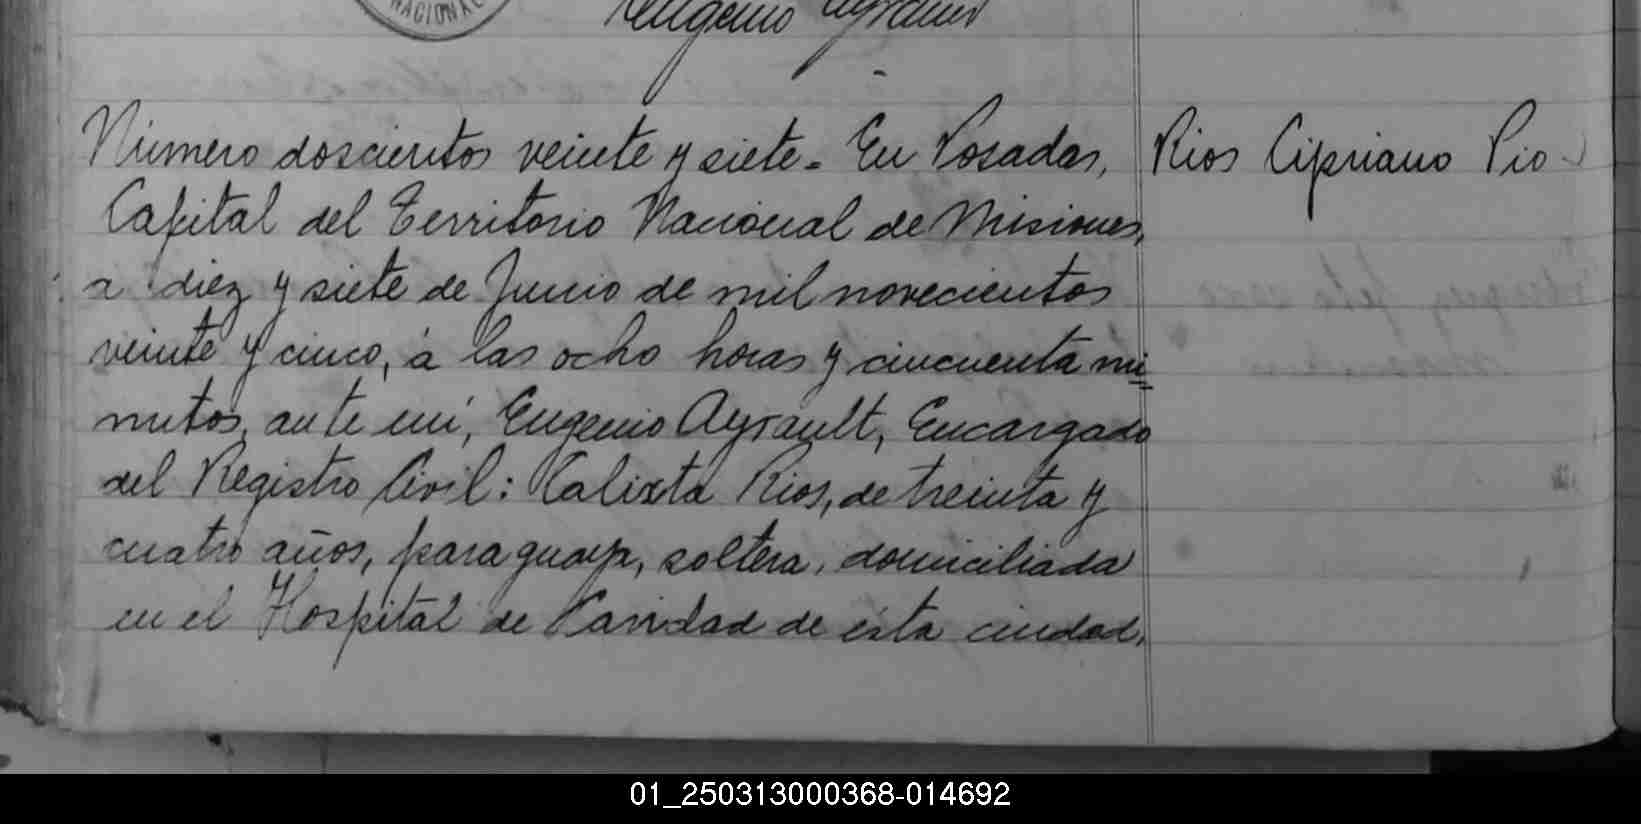 NACIONAL
Eugenio Ayrault
Número doscientos veinte y siete = En Posadas,
Rios Cipriano Pio -
Capital del Territorio Nacional de Misiones,
a diez y siete de Junio de mil novecientos
veinte y cinco, á las ocho horas y cincuenta mi=
nutos, ante mí, Eugenio Ayrault, Encargado
del Registro Civil: Calixta Rios, de treinta y
cuatro años, paraguaya, soltera, domiciliada
en el Hospital de Caridad de ésta ciudad,
01_250313000368-014692